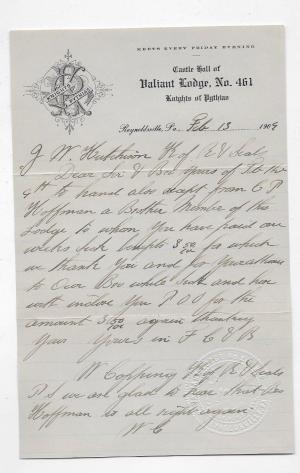 MEETS EVERY FRIDAY EVENING
Castle Hall of
Valiant Lodge, No. 461
Knights of Pythias
Reynoldsville, Pa., Feb 13 1909
J W Hutchison K of R & Seals
Dear Sir & Bro Yours of Feb the
9th to hand also recept from C P
Hoffman a Brother Member of this
Lodge to whom you have paid one
weeks Sick benefits $5 00/100 for which
we thank you and for your
to Our Bro while Sick and here
with inclose you P.O.O for the
amount $5 00/100 again thanking
you Yours in F C & B
W Copping K of R & Seals
P S we are glad to hear that Bro
Hoffman is all right again.
W C